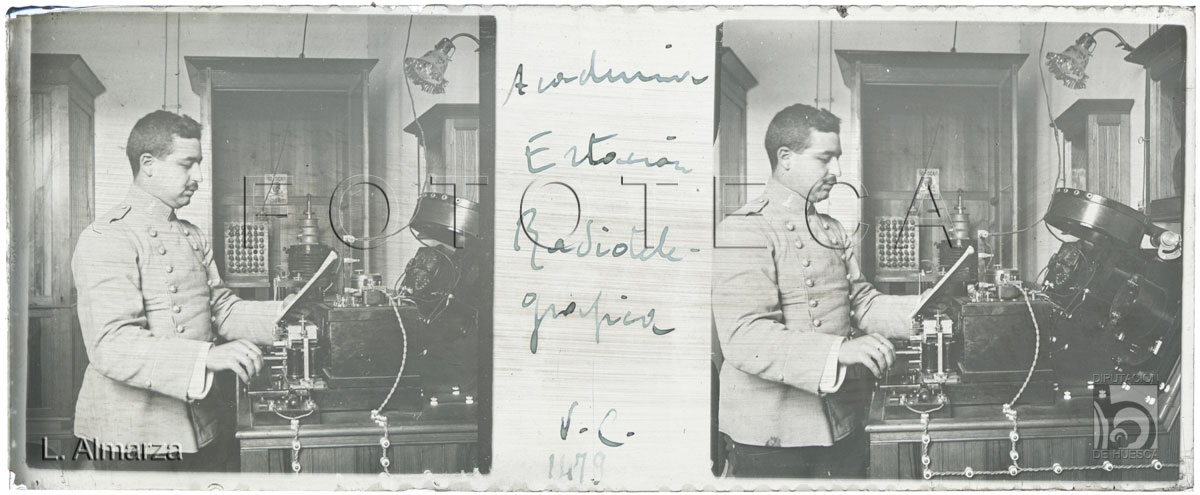 Academia
Estación
Radiotele-
grafica
V. C.
1479
FOTOTECA
L. Almarza
DIPUTACIÓN
DE HUESCA